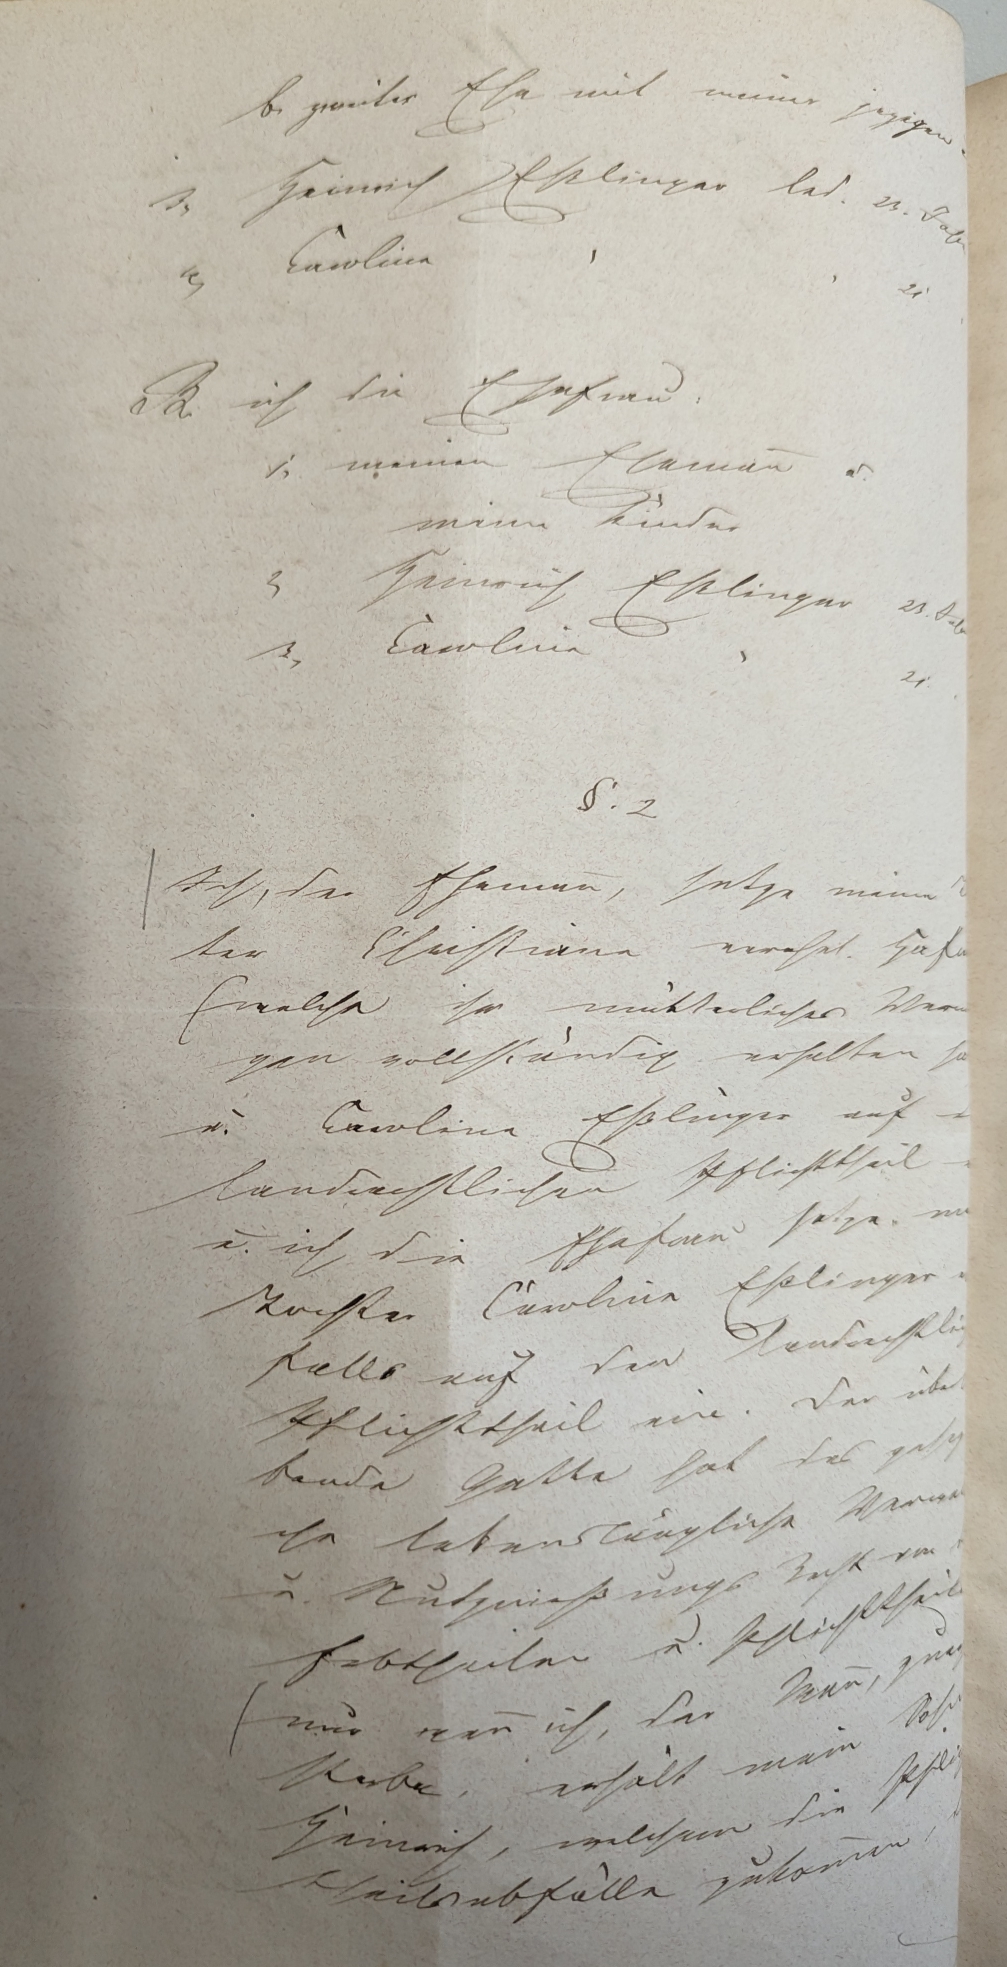 b. zweiter Ehe mit meiner jezigen
3, Heinrich Eßlinger led. 23. Febr
4, Caroline " " 21
B. ich die Ehefrau:
1, meinen Ehemann u.
meine Kinder
2, Heinrich Eßlinger 23. Febr
3, Caroline " 21.
§. 2
Ich, der Ehemann, setze meine
ter Christiane verehel.
(welche ihr mütterliches Verm
gen vollständig erhalten ha
u. Caroline Eßlinger auf
landrechtlichen Pflichttheil
u. ich die Ehefrau setze
Tochter Caroline Eßlinger
falls auf den landrechtli
Pflichttheil ein. Der übe
bende Gatte hat das gesez
che lebenslängliche Verwa
u. Nutznießungs Recht von
Erbtheilen u. Pflichttheile
nur wenn ich, der Mann, zue
sterbe, erhält mein Soh
Heinrich, welchem die Pfli
theilsabfälle zukommen